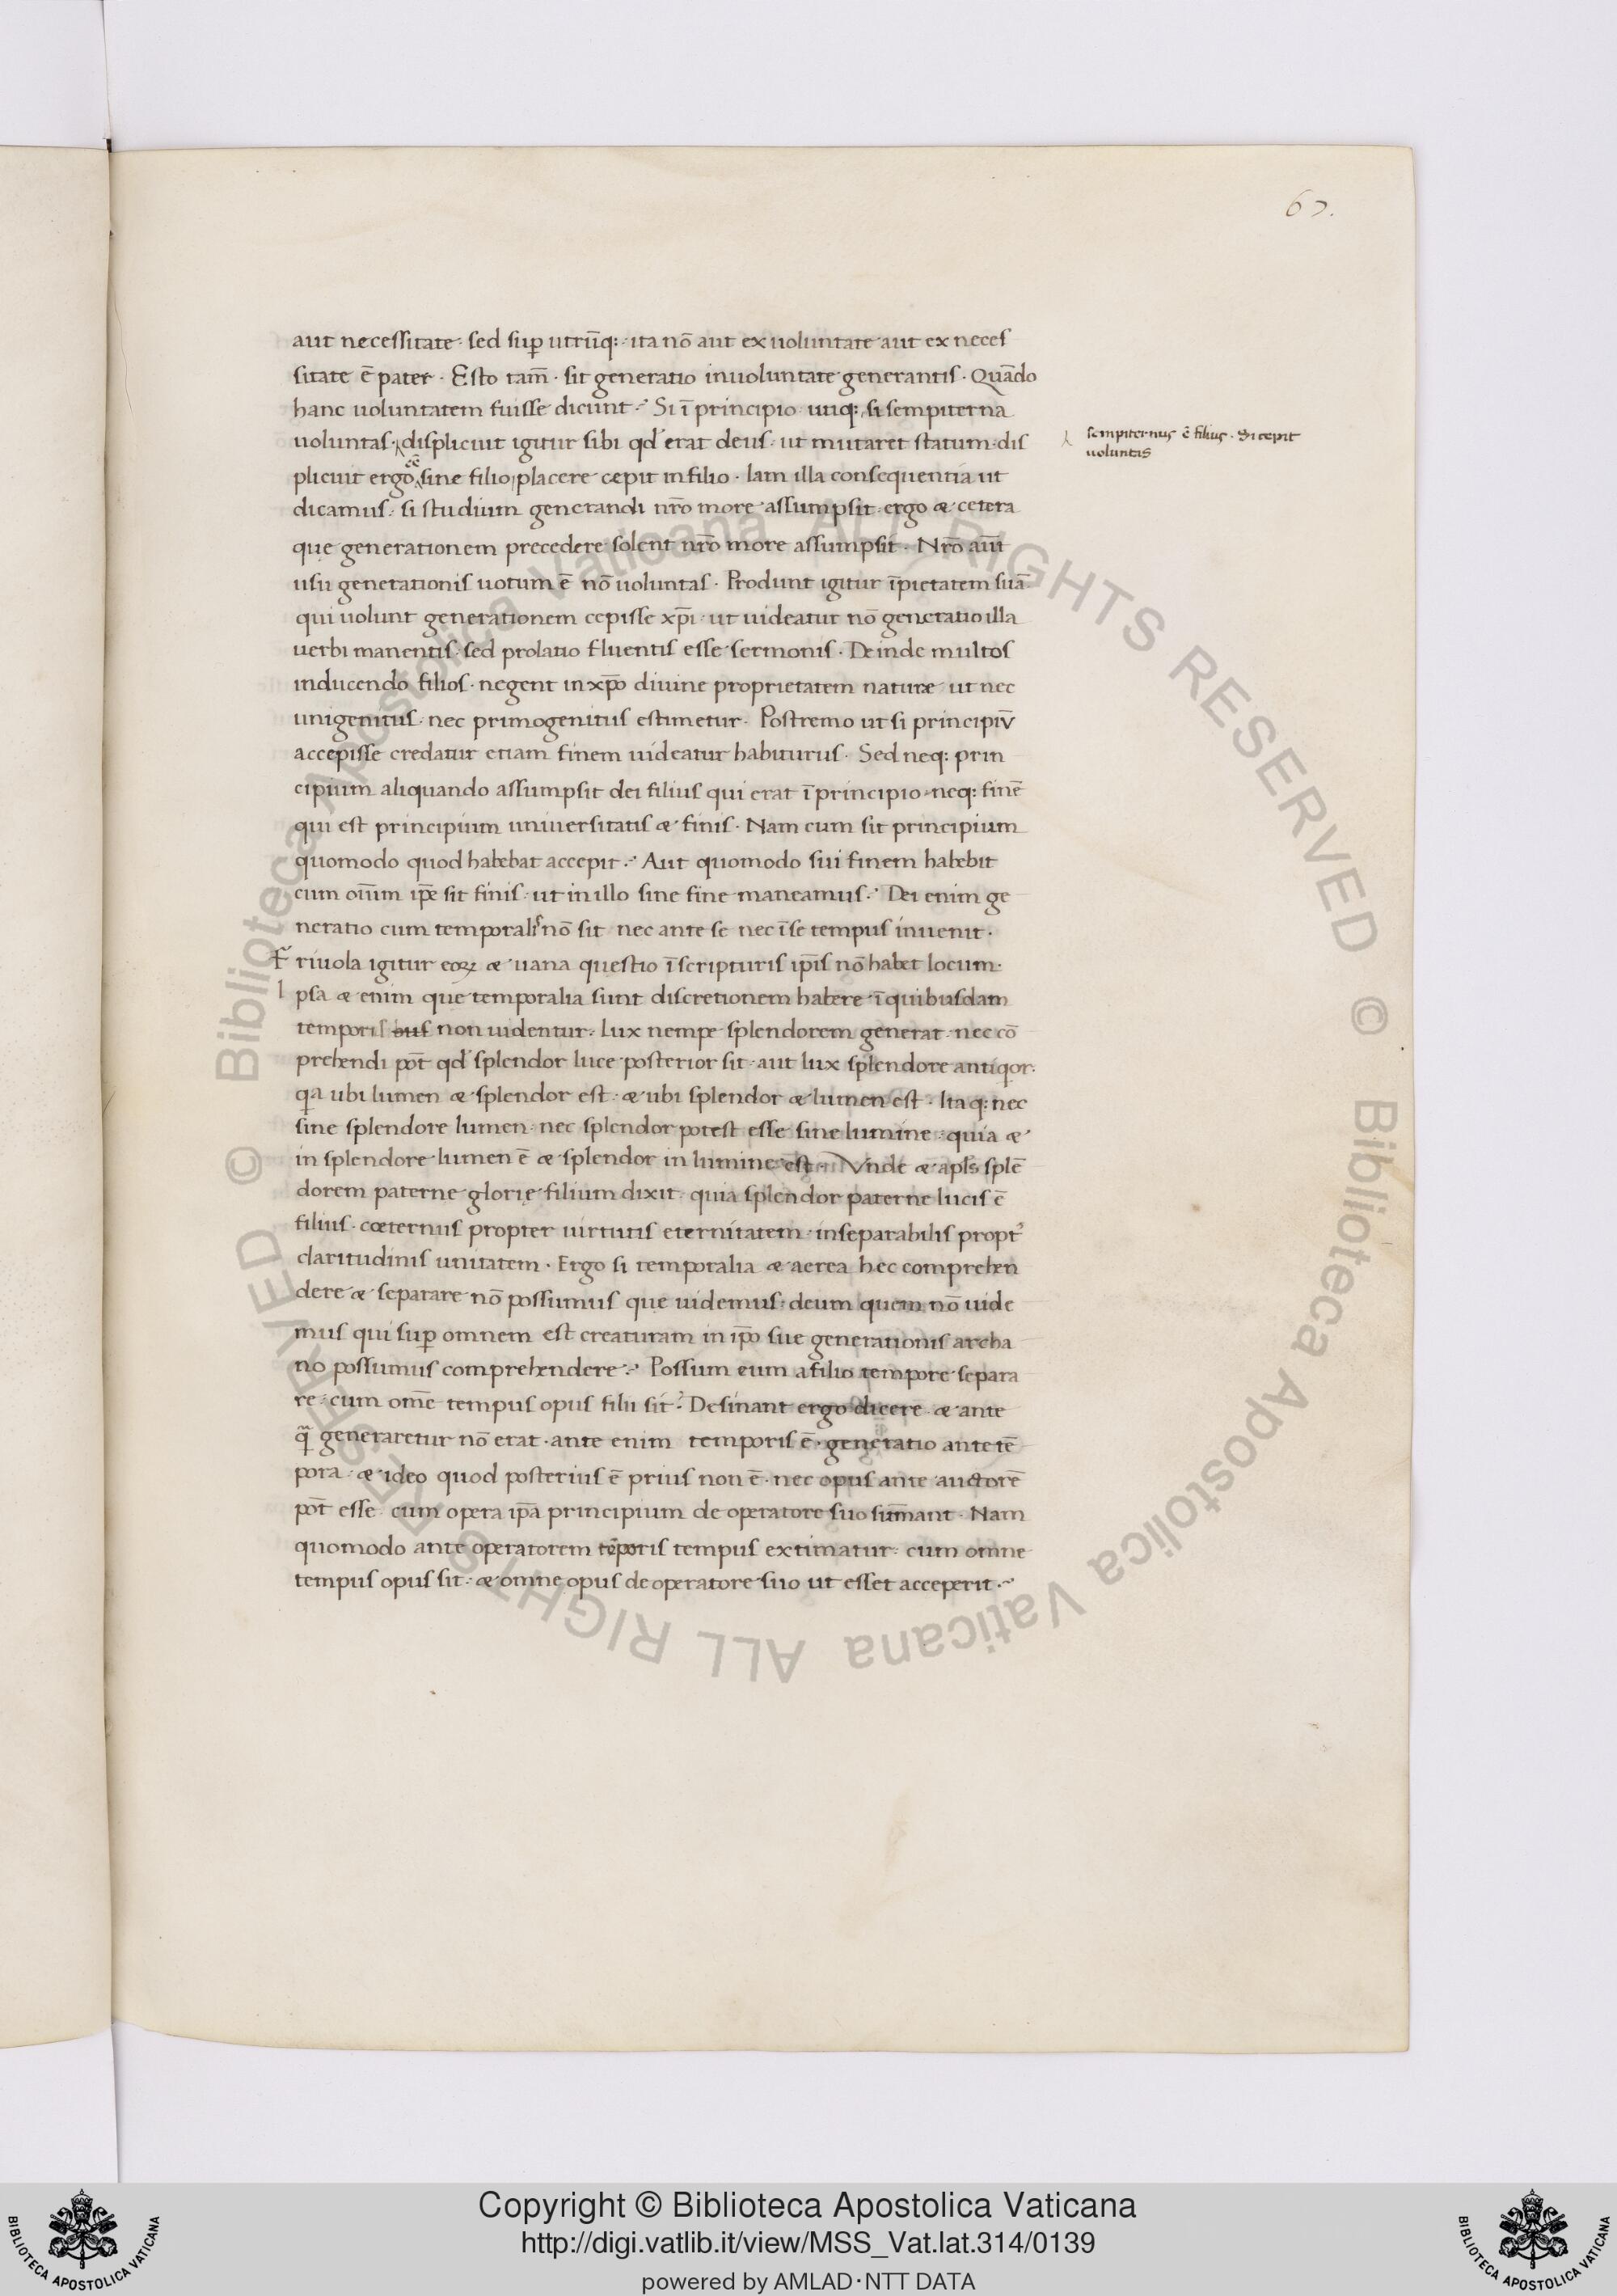 67.
aut necessitate· sed sup̱ utrūq:· ita nō aut ex uoluntate aut ex neces
sitate ē pater· Esto tam̄· sit generatio inuoluntate generantis· Quādo
hanc uoluntatem fuisse dicunt·Si ī principio utiq:, si sempiterna
uoluntas·displicuit igitur sibi qd' erat deus· ut mutaret statum·dis
sempiternus ē filius· Si cepit
uoluntas
plicuit ergo ēē sine filio placere cepit in filio· Iam illa consequentia ut
dicamus· si studium generandi nr̄o more assumpsit· ergo æ cetera
que generationem precedere solent nr̄o more assumpsit· Nr̄o aūt
usu generationis uotum ē nō uoluntas· Produnt igitur īpietatem suā·
qui uolunt generationem cepisse xp̄i· ut uideatur nō generatio illa
uerbi manentis· sed prolatio fluentis esse sermonis· Deinde multos
inducendo filios· negent in xp̄o diuine proprietatem nature ut nec
unigenitus· nec primogenitus estimetur· Postremo ut si principiū
accepisse credatur etiam finem uideatur habiturus· Sed neq: prin
cipium aliquando assumpsit dei filius qui erat ī principio·neq: finē
qui est principium uniuersitatis æ finis· Nam cum sit principium
quomodo quod habebat accepit· Aut quomodo sui finem habebit
cum oīum ip̄e sit finis· ut in illo sine fine maneamus· Dei enim ge
neratio cum temporalis nō sit nec ante se nec ī se tempus inuenit·
Friuola igitur eoꝝ æ uana questio ī scripturis ip̄is nō habet locum·
Ipsa æ enim que temporalia sunt discretionem habere ī quibusdam
temporis bus non uidentur· Lux nempe splendorem generat· nec cō
prehendi pōt qd' splendor luce posterior sit· aut lux splendore antiqor·
qa ubi lumen æ splendor est· æ ubi splendor æ lumen est· Itaq: nec
sine splendore lumen· nec splendor potest esse sine lumine· quia æ
in splendore lumen ē æ splendor in lumine est· Vnde æ apl̄s splē
dorem paterne glorię filium dixit· quia splendor paterne lucis ē
filius· cœternus propter uirtutis eternitatem· inseparabilis propt'
claritudinis unitatem· Ergo si temporalia æ aerea hec comprehen
dere æ separare nō possumus que uidemus· deum quem nō uide
mus qui sup̱ omnem est creaturam in ip̄o sue generationis archa
no possumus comprehendere· Possum eum a filio tempore separa
re· cum om̄e tempus opus filii sit· Desinant ergo dicere æ ante
q̄ generaretur nō erat· ante enim temporis ē· generatio ante tē
pora· æ ideo quod posterius ē prius non ē· nec opus ante auctorē
pōt esse cum opera ip̄a principium de operatore suo sum̄ant· Nam
quomodo ante operatorem tēporis tempus extimatur· cum omne
tempus opus sit· æ omne opus de operatore suo ut esset acceperit·
Copyright © Biblioteca Apostolica Vaticana
http://digi.vatlib.it/view/MSS_Vat.lat.314/0139
powered by AMLAD·NTT DATA
BIBLIOTECA APOSTOLICA VATICANA
BIBLIOTECA APOSTOLICA VATICANA
© Biblioteca Apostolica Vaticana ALL RIGHTS RESERVED © Biblioteca Apostolica Vaticana ALL RIGHTS RESERVED